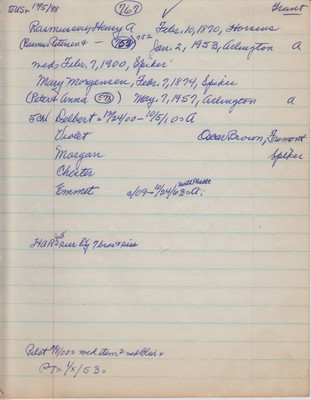 BUS= 175/88 (767) Grant
Rasmussen, Henry A Febr. 10, 1870, Horsens
(Rasmus Petersen & 754) 752 Jan. 2, 1953, Arlington A
md. Febr. 7, 1900, Spiker
Mary Morgensen, Febr. 7, 1874, Spiker
(Peter & Anna 575) May 7, 1957, Arlington A
5CH Delbert = 12/24/00 - 10/5/10 = A
Violet Oscar Brown, Fremont
Morgan Spiker
Chester
Emmet 2/09 - 4/24/63 = A.
HAR sur by 7 bro + sis
Pilot
PT = 1/8/53 =